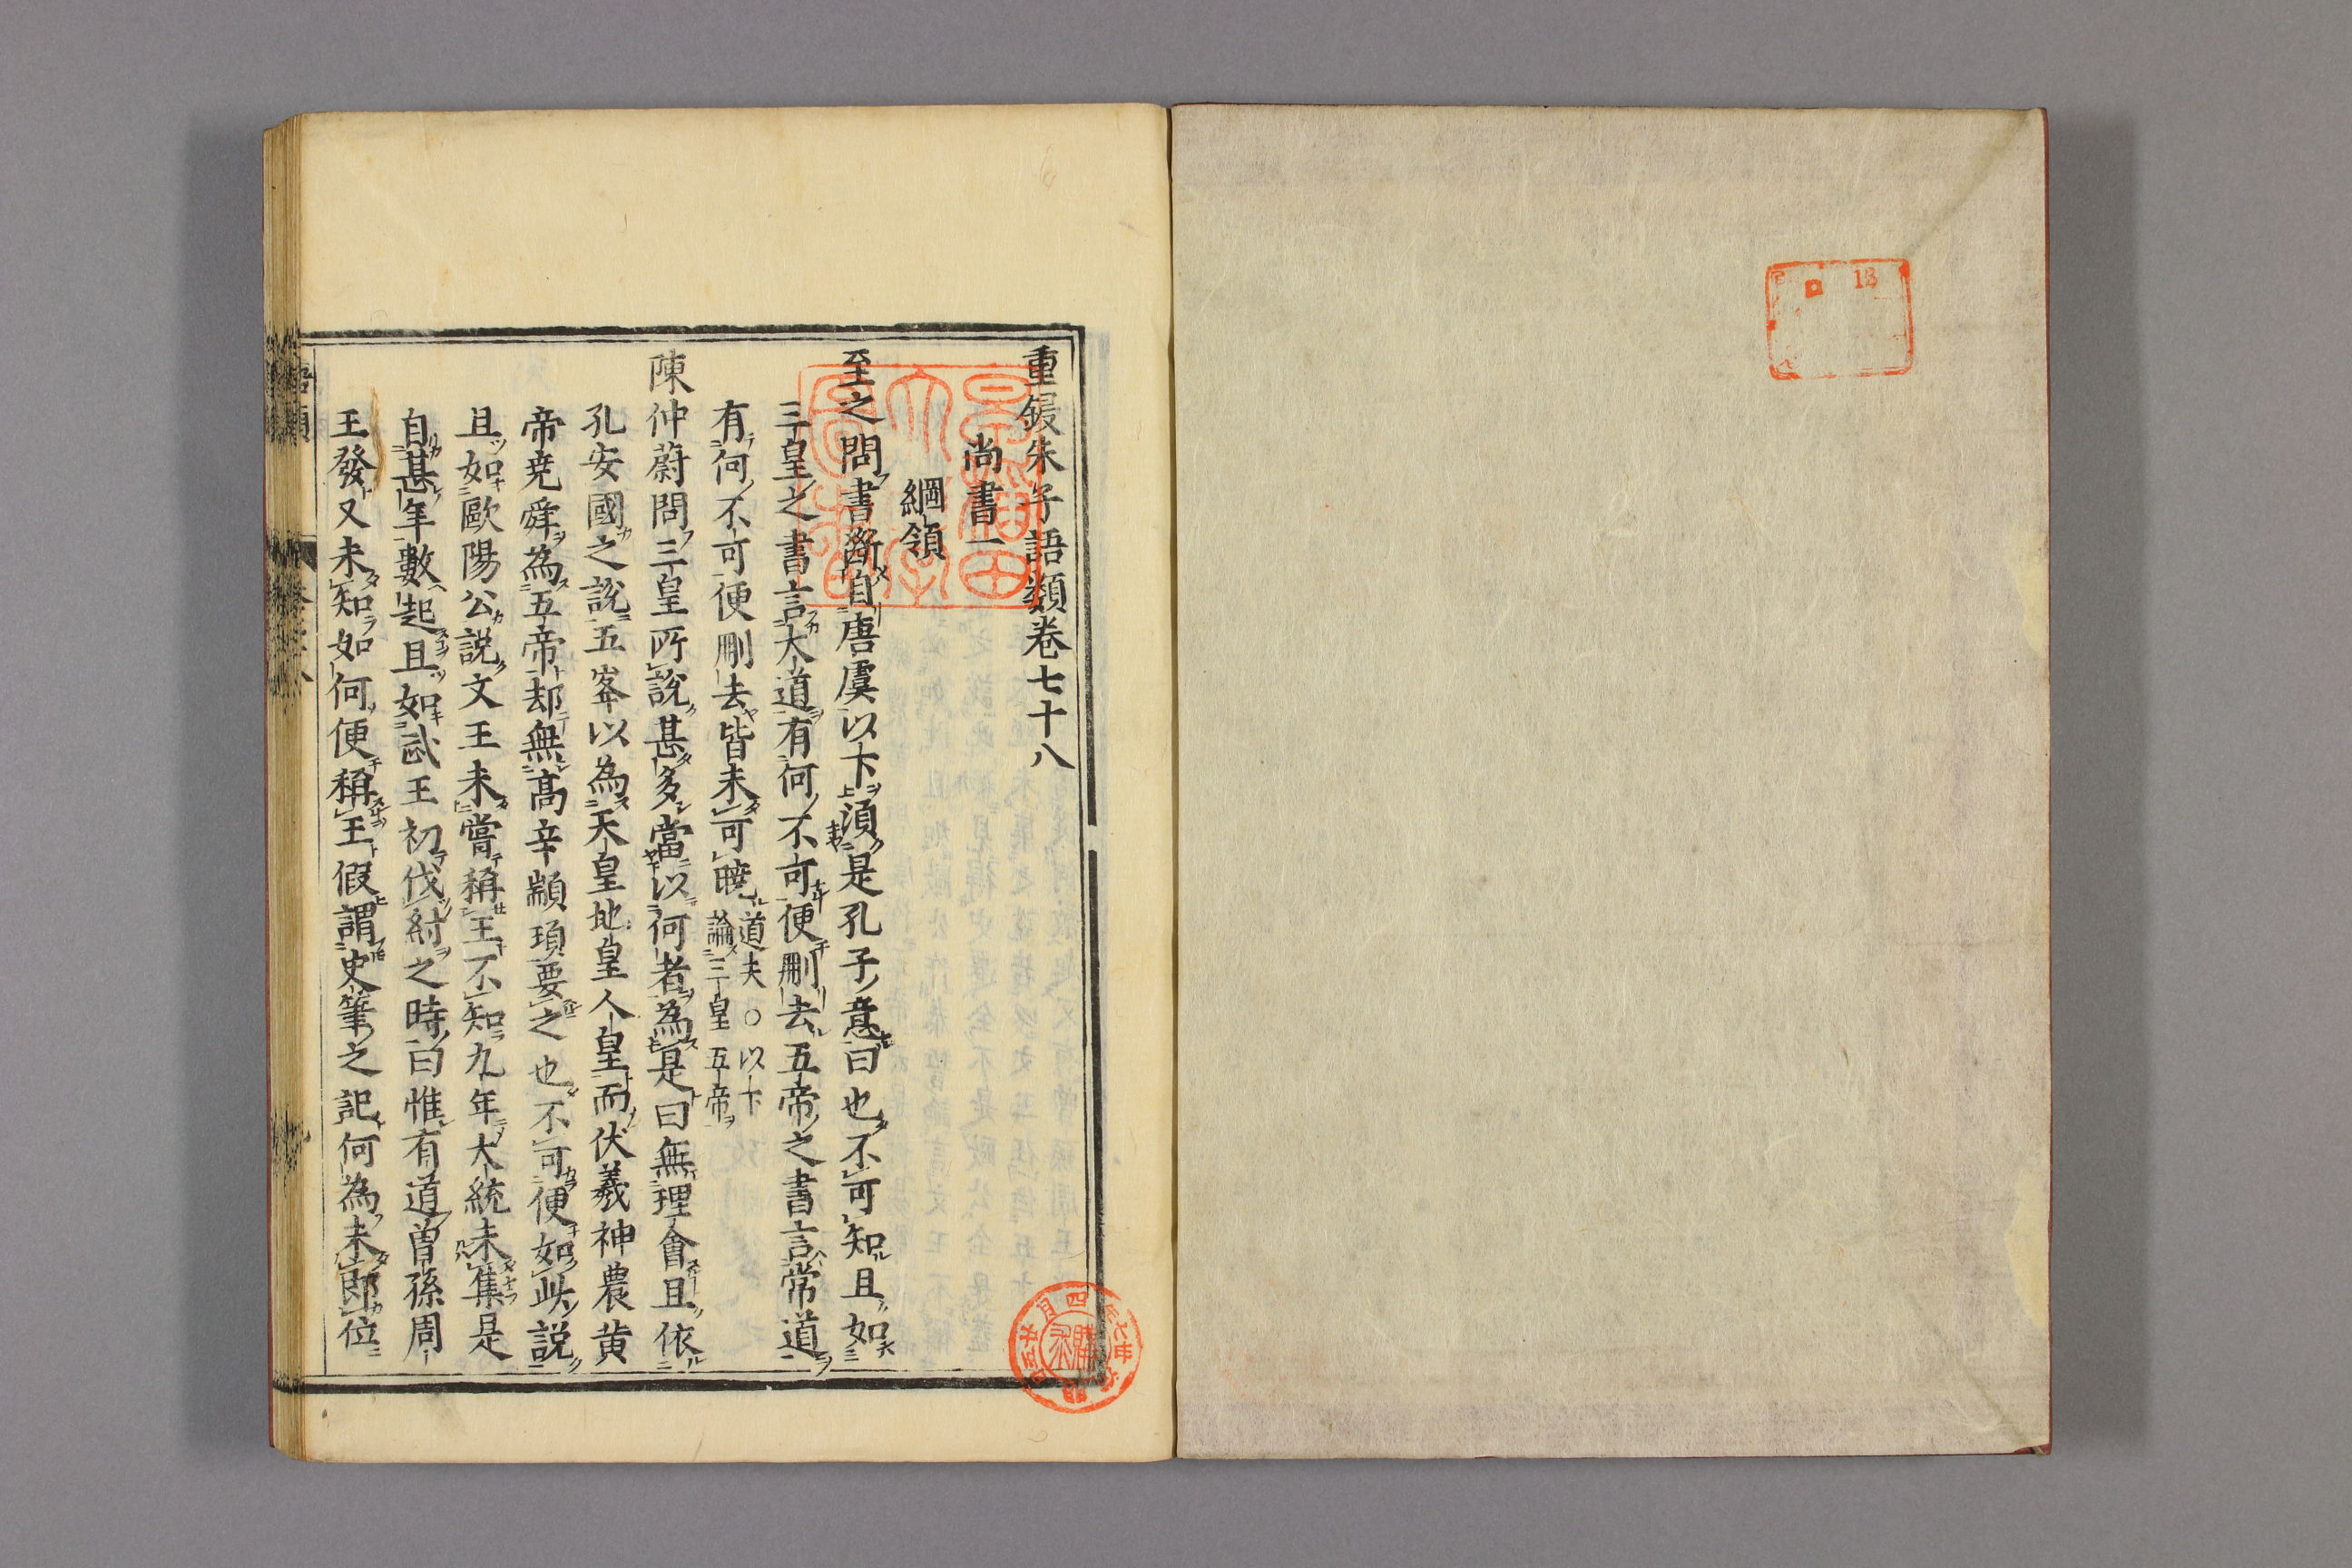 重鋟朱子語類卷七十八
尚書一
綱領
至之問書斷自唐虞以下須是孔子意曰也不可知且如
三皇之書言大道有何不可便刪去五帝之書言常道
有何不可便刪去皆未可曉道夫○以下論三皇五帝
陳仲蔚問三皇所說甚多當以何者為是曰無理會且依
孔安國之說五峯以為天皇地皇人皇而伏羲神農黃
帝堯舜為五帝却無高辛顓頊要之也不可便如此說
且如歐陽公說文王未嘗稱王不知九年大統未集是
自甚年數起且如武王初伐紂之時曰惟有道曾孫周
王發又未知如何便稱王假謂史筆之記何為未即位
13